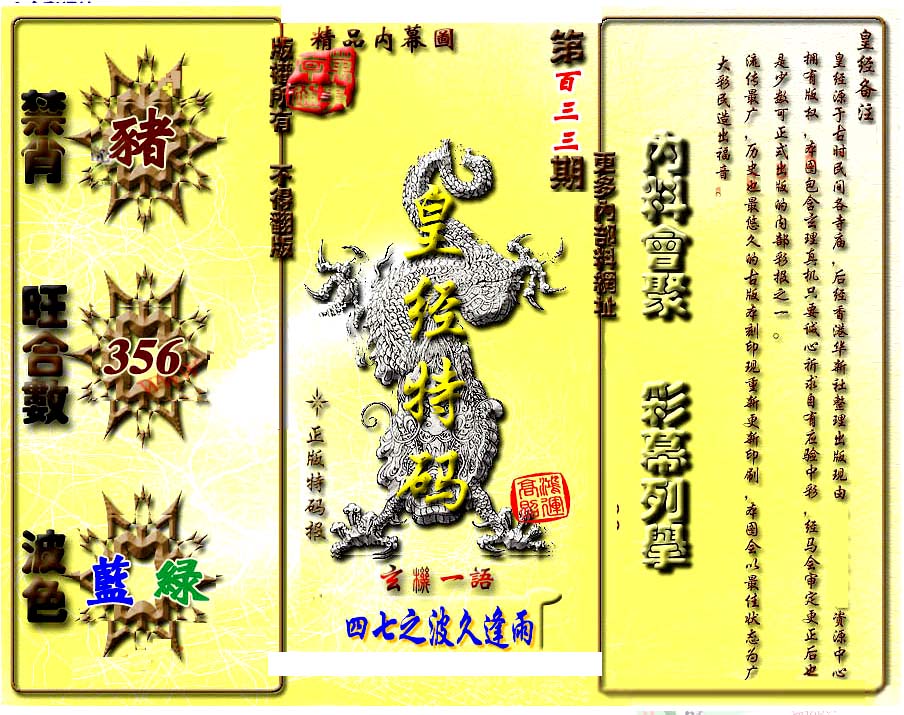 精品內幕圖
第百三三期
版權所有 不得翻版
皇经特码
正版特码报
鴻運高照
玄機一語
四七之波久逢雨
禁肖
豬
旺合數
356
波色
藍 綠
更多內部料網址
內料會聚
彩幕列舉
皇经备注
皇经源于古时民间各寺庙，后经香港华新社整理出版现由 资源中心
拥有版权，本图包含玄理真机只要诚心祈求自有应验中彩，经马会审定更正后也
是少数可正式出版的内部彩报之一。
流传最广，历史也最悠久的古版本刻印现重新更新印刷，本图会以最佳状态为广
大彩民造出福音